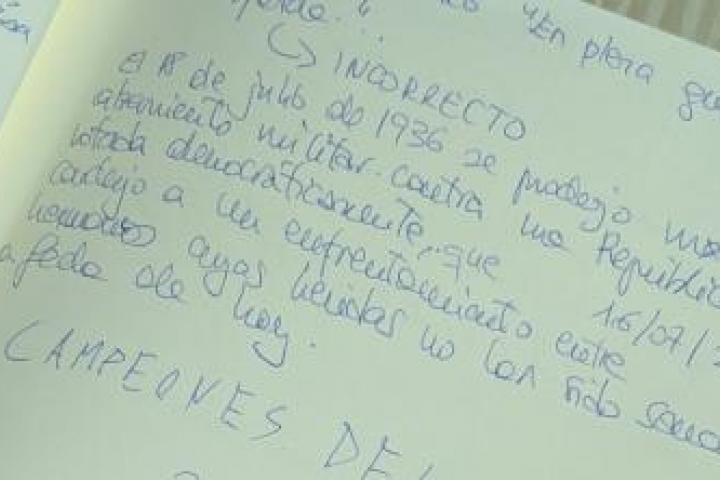 "En plena gu
INCORRECTO
El 18 de julio de 1936 se produjo un
alzamiento militar contra una República
votada democráticamente, que
condujo a un enfrentamiento entre
hermanos cuyas heridas no han sido
a fecha de hoy.
16/07/
CAMPEONES DEL